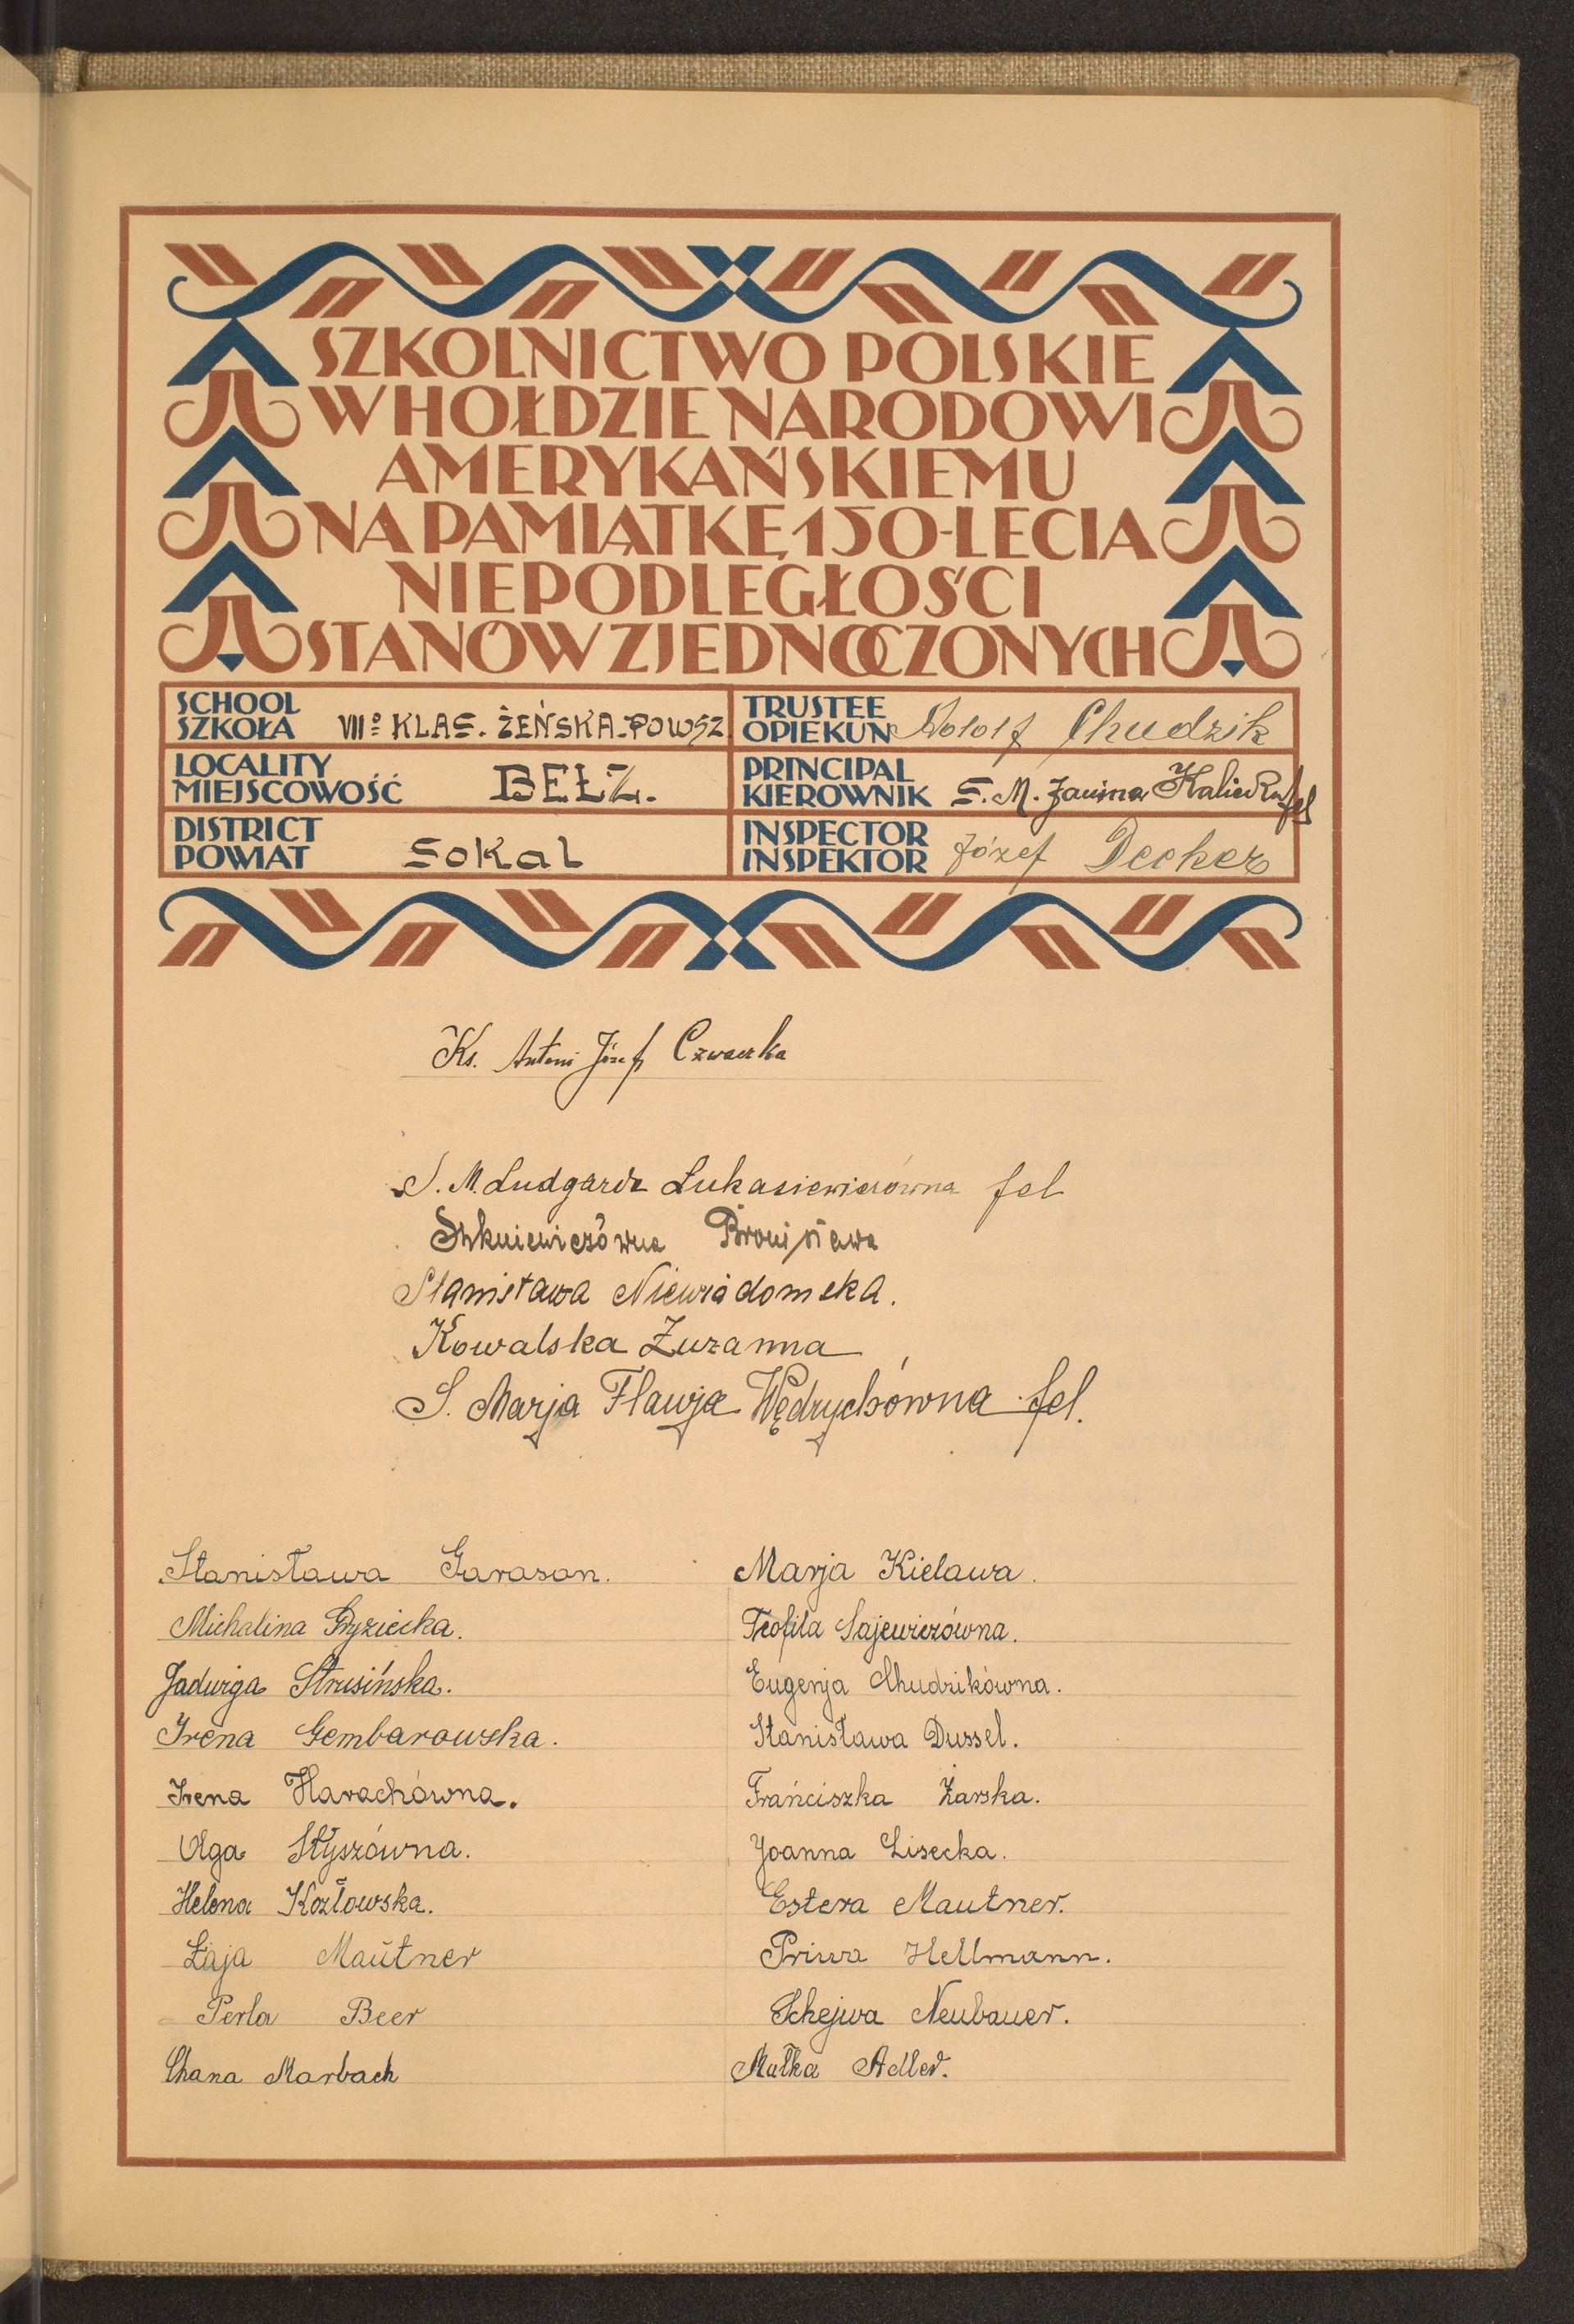 SZKOLNICTWO POLSKIE
W HOŁDZIE NARODOWI
AMERYKAŃSKIEMU
NA PAMIĄTKĘ 150-LECIA
NIEPODLEGŁOŚCI
STANÓW ZJEDNOCZONYCH
SCHOOL
SZKOŁA VIIo KLAS. ŻEŃSKA-POWSZ
TRUSTEE
OPIEKUN Adolf Chudzik
LOCALITY
MIEJSCOWOŚĆ BEŁZ.
PRINCIPAL
KIEROWNIK S. M. Janina Kaliecka fel
DISTRICT
POWIAT Sokal
INSPECTOR
INSPEKTOR Józef Decker
Ks. Antoni Józef Czwaczka
S. M. Ludgarda Łukasiewiczówna fel
Bronisława
Stanisława Niewiadomska.
Kowalska Zuzanna
S. Marja Flawja Wędrychówna fel.
Stanisława Garason.
Michalina Gryziecka.
Jadwiga Strusińska.
Irena Gembarowska.
Irena Harachówna.
Olga Styszówna.
Helena Kozłowska.
Łaja Mautner
Perla Beer
Chana Marbach
Marja Kielawa.
Teofila Sajewiczówna.
Eugenja Chudzikówna.
Stanisława Dussel.
Frańciszka Żarska.
Joanna Lisecka.
Estera Mautner.
Priwa Hellmann.
Schejwa Neubauer.
Małka Adler.